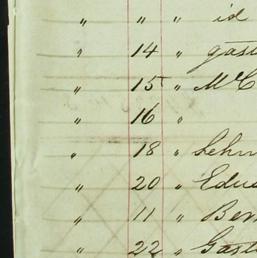 " " " id
" 14 " gast
" 15 " McC
" 16 "
" 18 " Lehm
" 20 " Edua
" 11 " Ber
" 22 " Gast